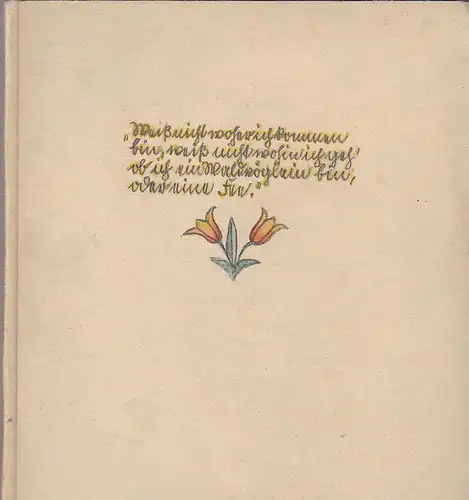 „Weiß nicht woher ich kommen
bin, weiß nicht wohin ich geh'
ob ich ein Waldvöglein bin,
oder eine Fee.“